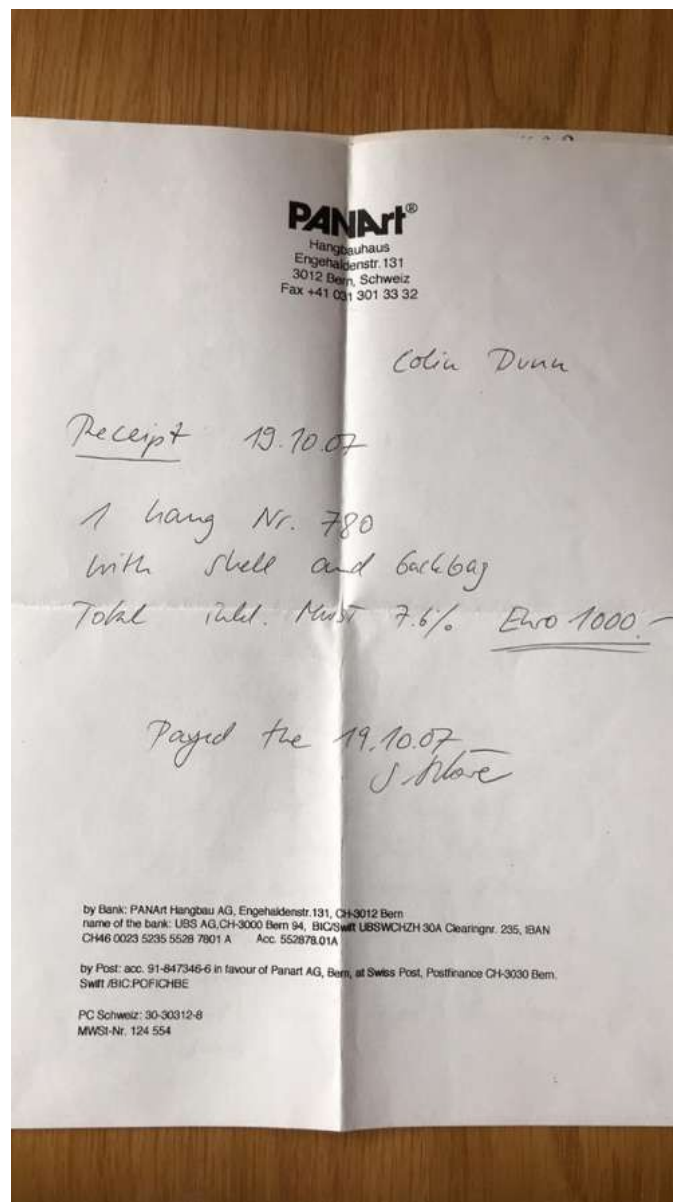 PANArt®
Hangbauhaus
Engehaldenstr. 131
3012 Bern, Schweiz
Fax +41 031 301 33 32
Colin Dunn
Receipt 19.10.07
1 hang Nr. 780
with shell and backbag
Total inkl. Mwst 7.6% Euro 1000.-
Payed the 19.10.07
by Bank: PANArt Hangbau AG, Engehaldenstr. 131, CH-3012 Bern
name of the bank: UBS AG,CH-3000 Bern 94, BIC/Swift UBSWCHZH 30A Clearingnr. 235, IBAN
CH46 0023 5235 5528 7801 A Acc. 552878.01A
by Post: acc. 91-847346-6 in favour of Panart AG, Bern, at Swiss Post, Postfinance CH-3030 Bern.
Swift /BIC:POFICHBE
PC Schweiz: 30-30312-8
MWSt-Nr. 124 554